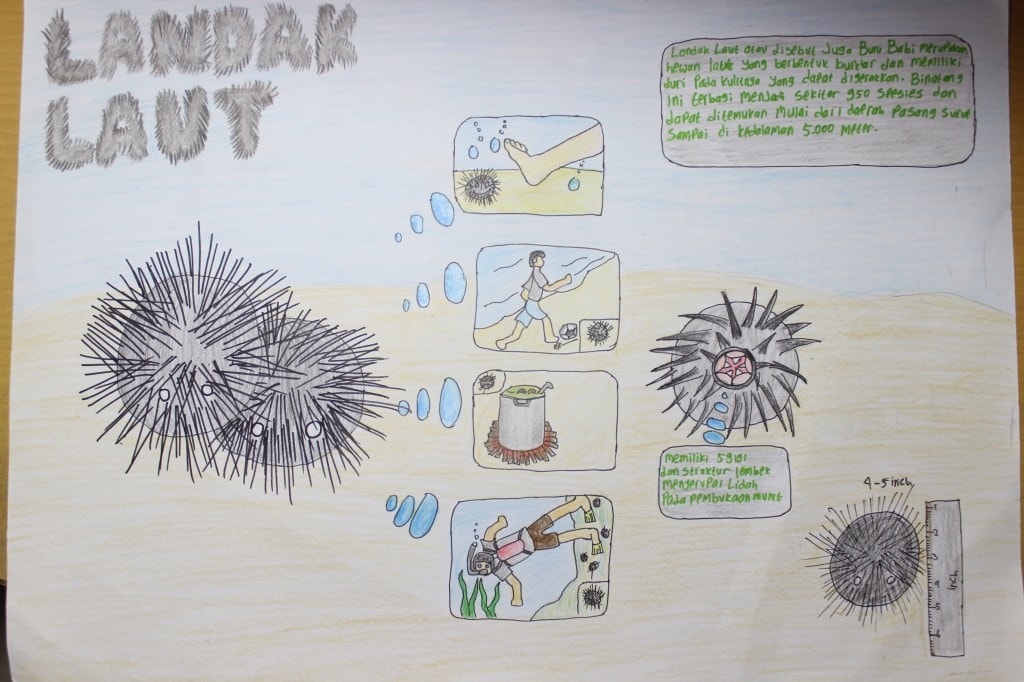 LANDAK
LAUT
Landak Laut atau disebut Juga Bulu Babi merupakan
hewan laut yang berbentuk bundar dan memiliki
duri pada kulitnya yang dapat digerakkan. Binatang
ini terbagi menjadi sekitar 950 spesies dan
dapat ditemukan mulai dari daerah pasang surut
sampai di kedalaman 5.000 meter.
memiliki 5 gigi
dan struktur lembek
menyerupai Lidah
Pada pembukaan mulut
4-5 inch,
inch